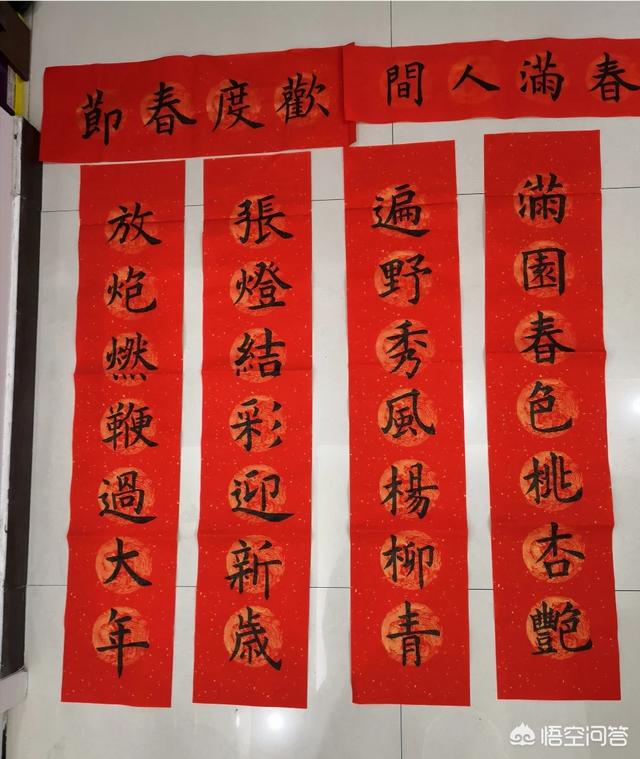 春滿人間
歡度春節
滿園春色桃杏艷
遍野秀風楊柳青
張燈結彩迎新歳
放炮燃鞭過大年
悟空问答